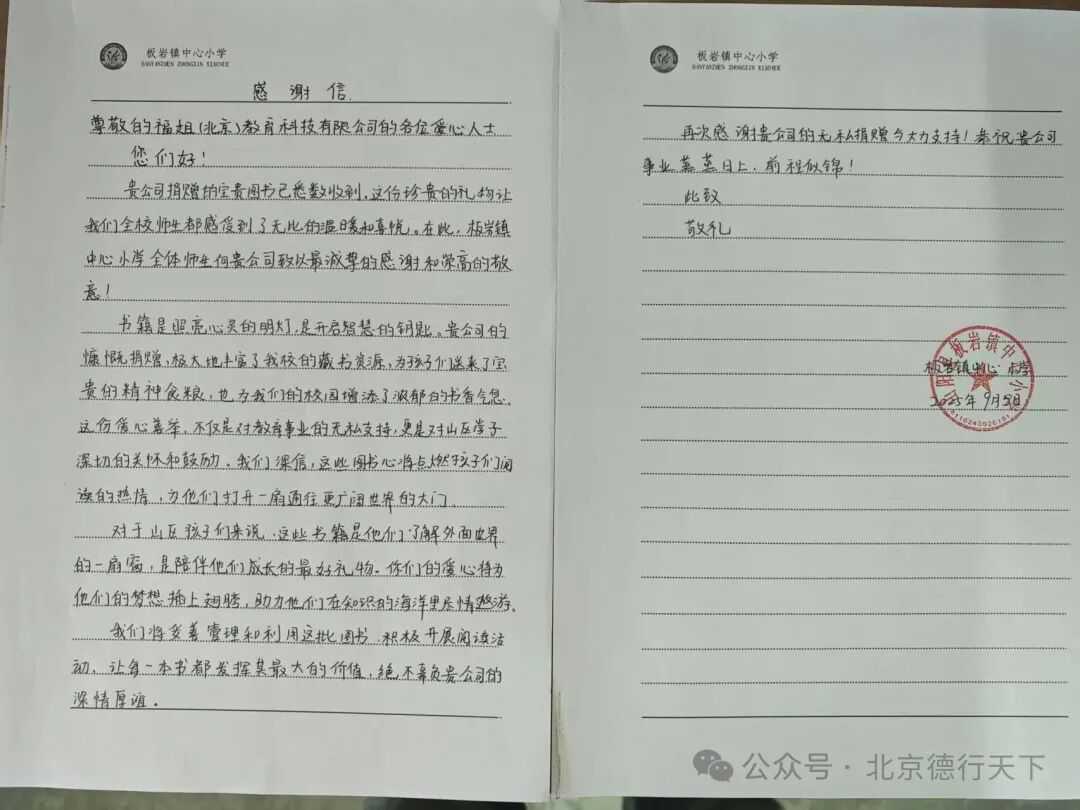 板岩镇中心小学
BANYANZHEN ZHONGXIN XIAOXUE
感谢信
尊敬的福姐(北京)教育科技有限公司的各位爱心人士
您们好！
贵公司捐赠的宝贵图书已悉数收到，这份珍贵的礼物让
我们全校师生都感受到了无比的温暖和喜悦。在此，板岩镇
中心小学全体师生向贵公司致以最诚挚的感谢和崇高的敬
意！
书籍是照亮心灵的明灯，是开启智慧的钥匙。贵公司的
慷慨捐赠，极大地丰富了我校的藏书资源，为孩子们送来了宝
贵的精神食粮，也为我们的校园增添了浓郁的书香气息。
这份爱心善举，不仅是对教育事业的无私支持，更是对山区学子
深切的关怀和鼓励。我们深信，这些图书必将点燃孩子们阅
读的热情，为他们打开一扇通往更广阔世界的大门。
对于山区孩子们来说，这些书籍是他们了解外面世界
的一扇窗，是陪伴他们成长的最好礼物。你们的爱心将为
他们的梦想插上翅膀，助力他们在知识的海洋里尽情遨游。
我们将妥善管理和利用这批图书，积极开展阅读活
动，让每一本书都发挥其最大的价值，绝不辜负贵公司的
深情厚谊。
板岩镇中心小学
BANYANZHEN ZHONGXIN XIAOXUE
再次感谢贵公司的无私捐赠与大力支持！恭祝贵公司
事业蒸蒸日上，前程似锦！
此致
敬礼
板岩镇中心小学
2025年9月5日
山阳县板岩镇中心小学
公众号·北京德行天下